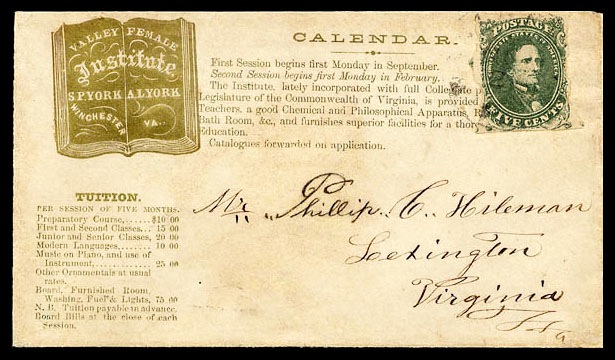 VALLEY FEMALE
Institute
S.P.YORK A.L.YORK
WINCHESTER VA.
CALENDAR.
First Session begins first Monday in September.
Second Session begins first Monday in February.
The Institute, lately incorporated with full Collegiate p
Legislature of the Commonwealth of Virginia, is provided
Teachers, a good Chemical and Philosophical Apparatus,
Bath Room, &c., and furnishes superior facilities for a thor
Education.
Catalogues forwarded on application.
POSTAGE
FIVE CENTS
TUITION.
PER SESSION OF FIVE MONTHS.
Preparatory Course,......$10 00
First and Second Classes... 15 00
Junior and Senior Classes, 20 00
Modern Languages........ 10 00
Music on Piano, and use of
Instrument,.............. 25 00
Other Ornamentals at usual
rates.
Board, Furnished Room,
Washing, Fuel & Lights, 75 00
N. B. Tuition payable in advance.
Board Bills at the close of each
Session.
Mr. Phillip. C. Hileman
Lexington
Virginia